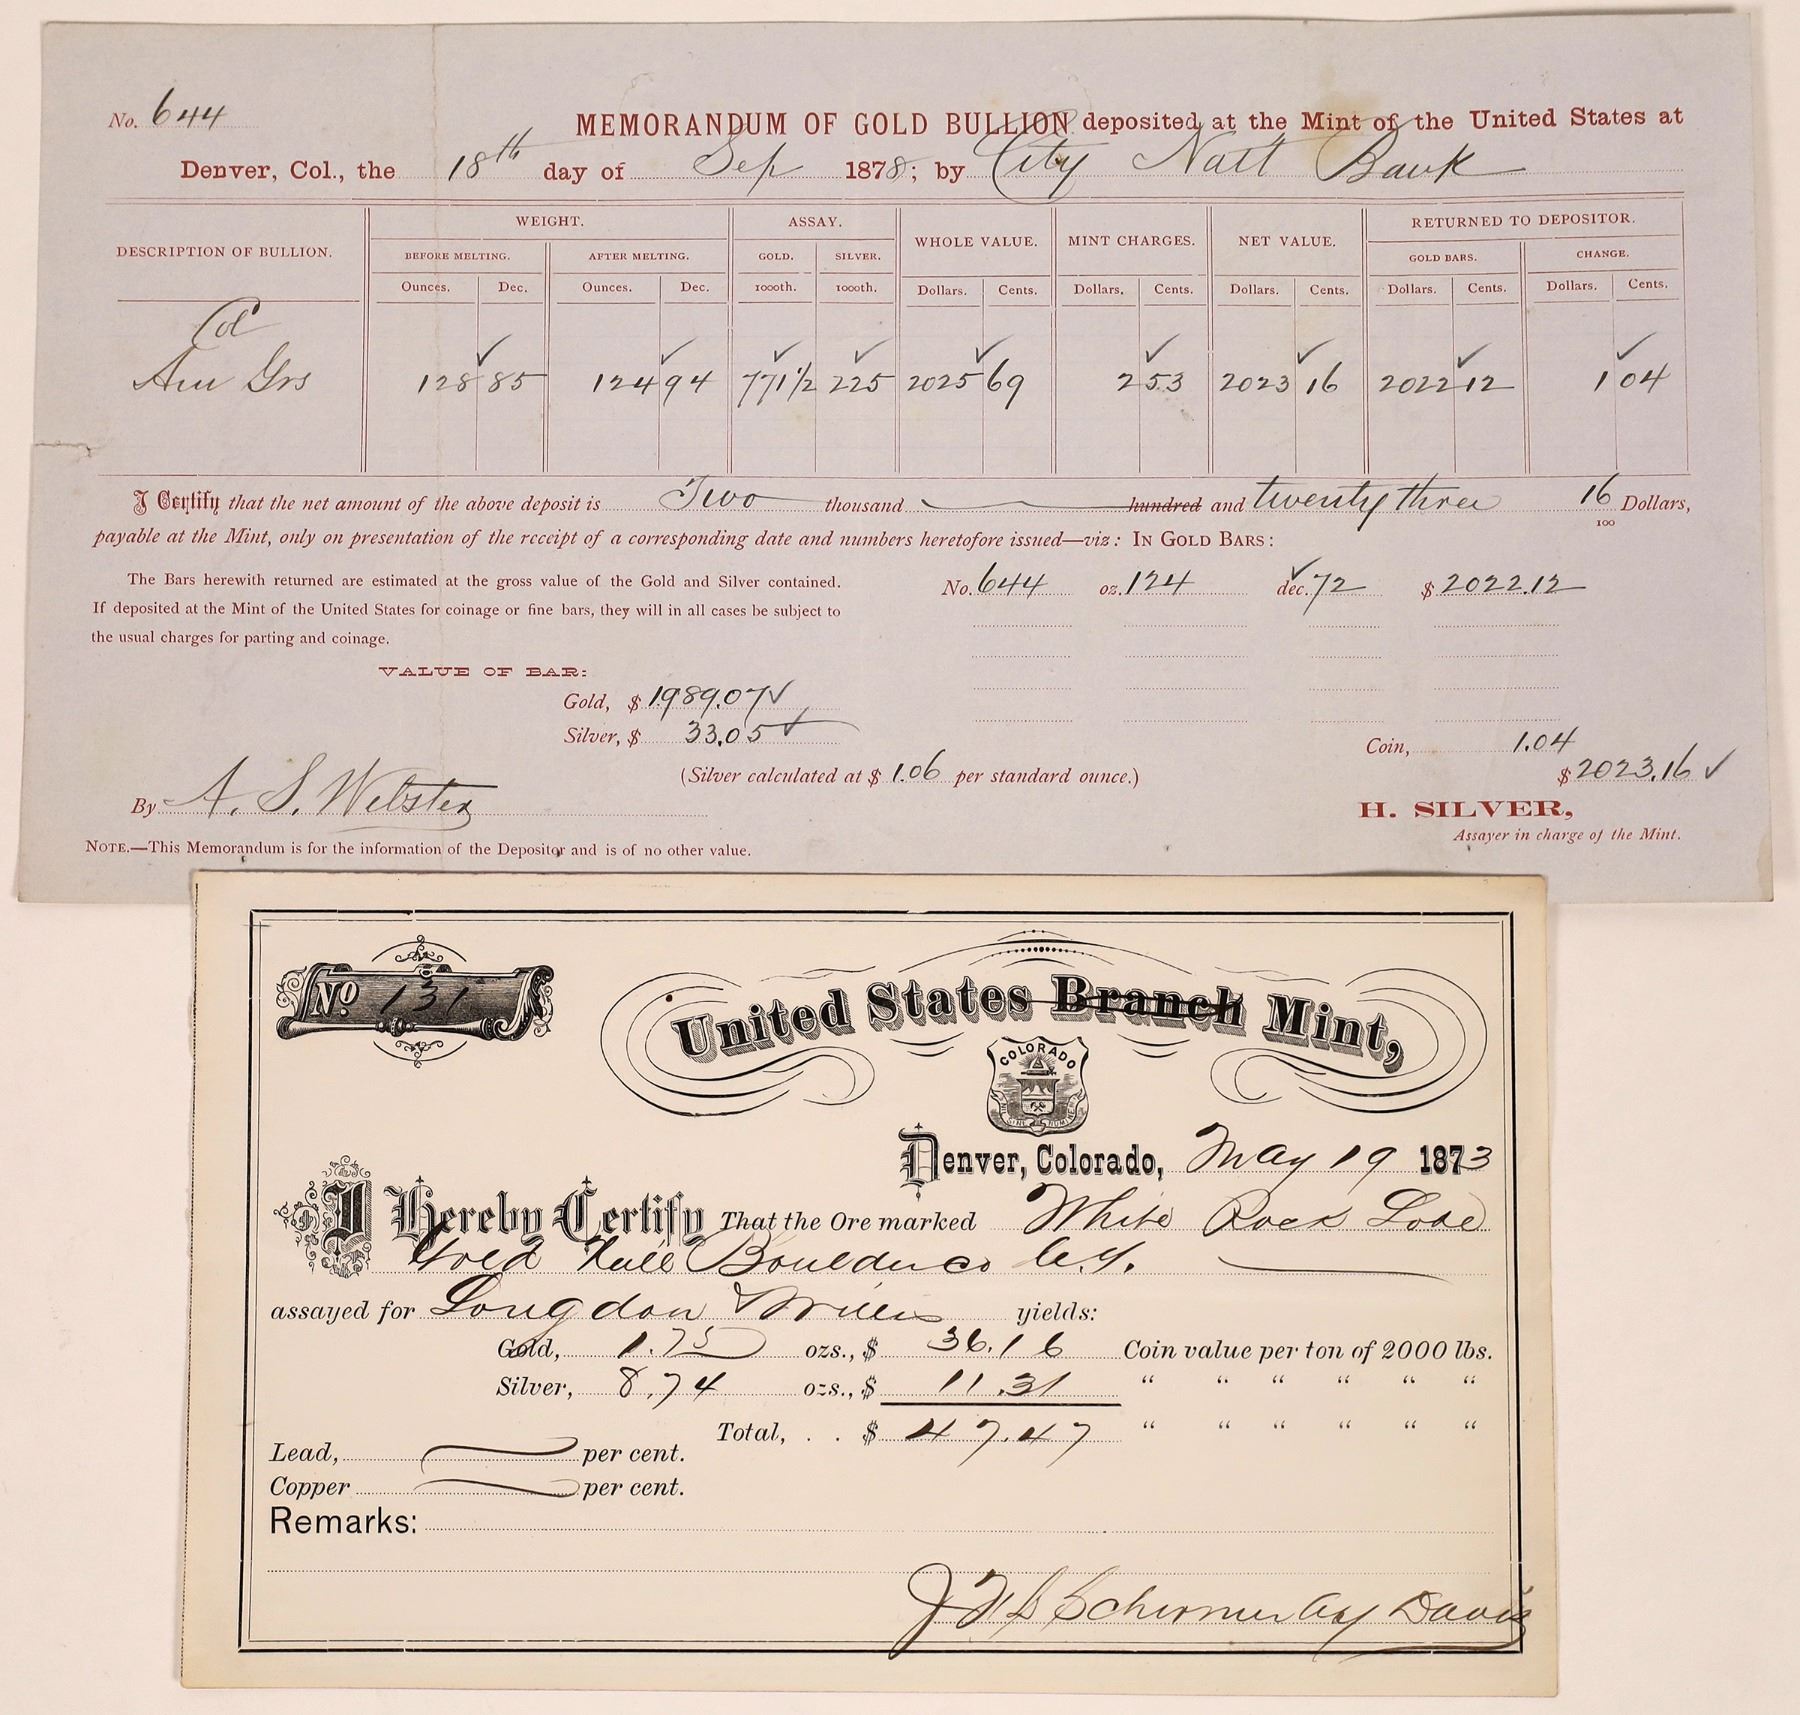 No. 644
MEMORANDUM OF GOLD BULLION deposited at the Mint of the United States at
Denver, Col., the 18th day of Sep 1878; by City Natl Bank
DESCRIPTION OF BULLION. WEIGHT. ASSAY. WHOLE VALUE. MINT CHARGES. NET VALUE. RETURNED TO DEPOSITOR.
BEFORE MELTING. AFTER MELTING. GOLD. SILVER. GOLD BARS. CHANGE.
Ounces. Dec. Ounces. Dec. 1000th. 1000th. Dollars. Cents. Dollars. Cents. Dollars. Cents. Dollars. Cents. Dollars. Cents.
Col
Am Grs 128 85 124 94 771 1/2 225 2025 69 2 53 2023 16 2022 12 1 04
I Certify that the net amount of the above deposit is Two thousand hundred and twenty three 16/100 Dollars,
payable at the Mint, only on presentation of the receipt of a corresponding date and numbers heretofore issued—viz: IN GOLD BARS:
The Bars herewith returned are estimated at the gross value of the Gold and Silver contained.
If deposited at the Mint of the United States for coinage or fine bars, they will in all cases be subject to
the usual charges for parting and coinage.
No. 644 oz. 124 dec. 72 $ 2022.12
VALUE OF BAR:
Gold, $ 1989.07
Silver, $ 33.05
(Silver calculated at $ 1.06 per standard ounce.)
Coin, 1.04
$ 2023.16
By A. S. Webster
H. SILVER,
Assayer in charge of the Mint.
NOTE.—This Memorandum is for the information of the Depositor and is of no other value.
No. 131
United States Branch Mint,
COLORADO
NIL SINE NUMINE
Denver, Colorado, May 19 1873
I Hereby Certify That the Ore marked White Rock Lode
Gold Hill Boulder Co C.T.
assayed for Longdon & yields:
Gold, 1.75 ozs., $ 36.16 Coin value per ton of 2000 lbs.
Silver, 8.74 ozs., $ 11.31 " " " " " "
Total, . . $ 47.47 " " " " " "
Lead, per cent.
Copper per cent.
Remarks:
Schirmer Davis